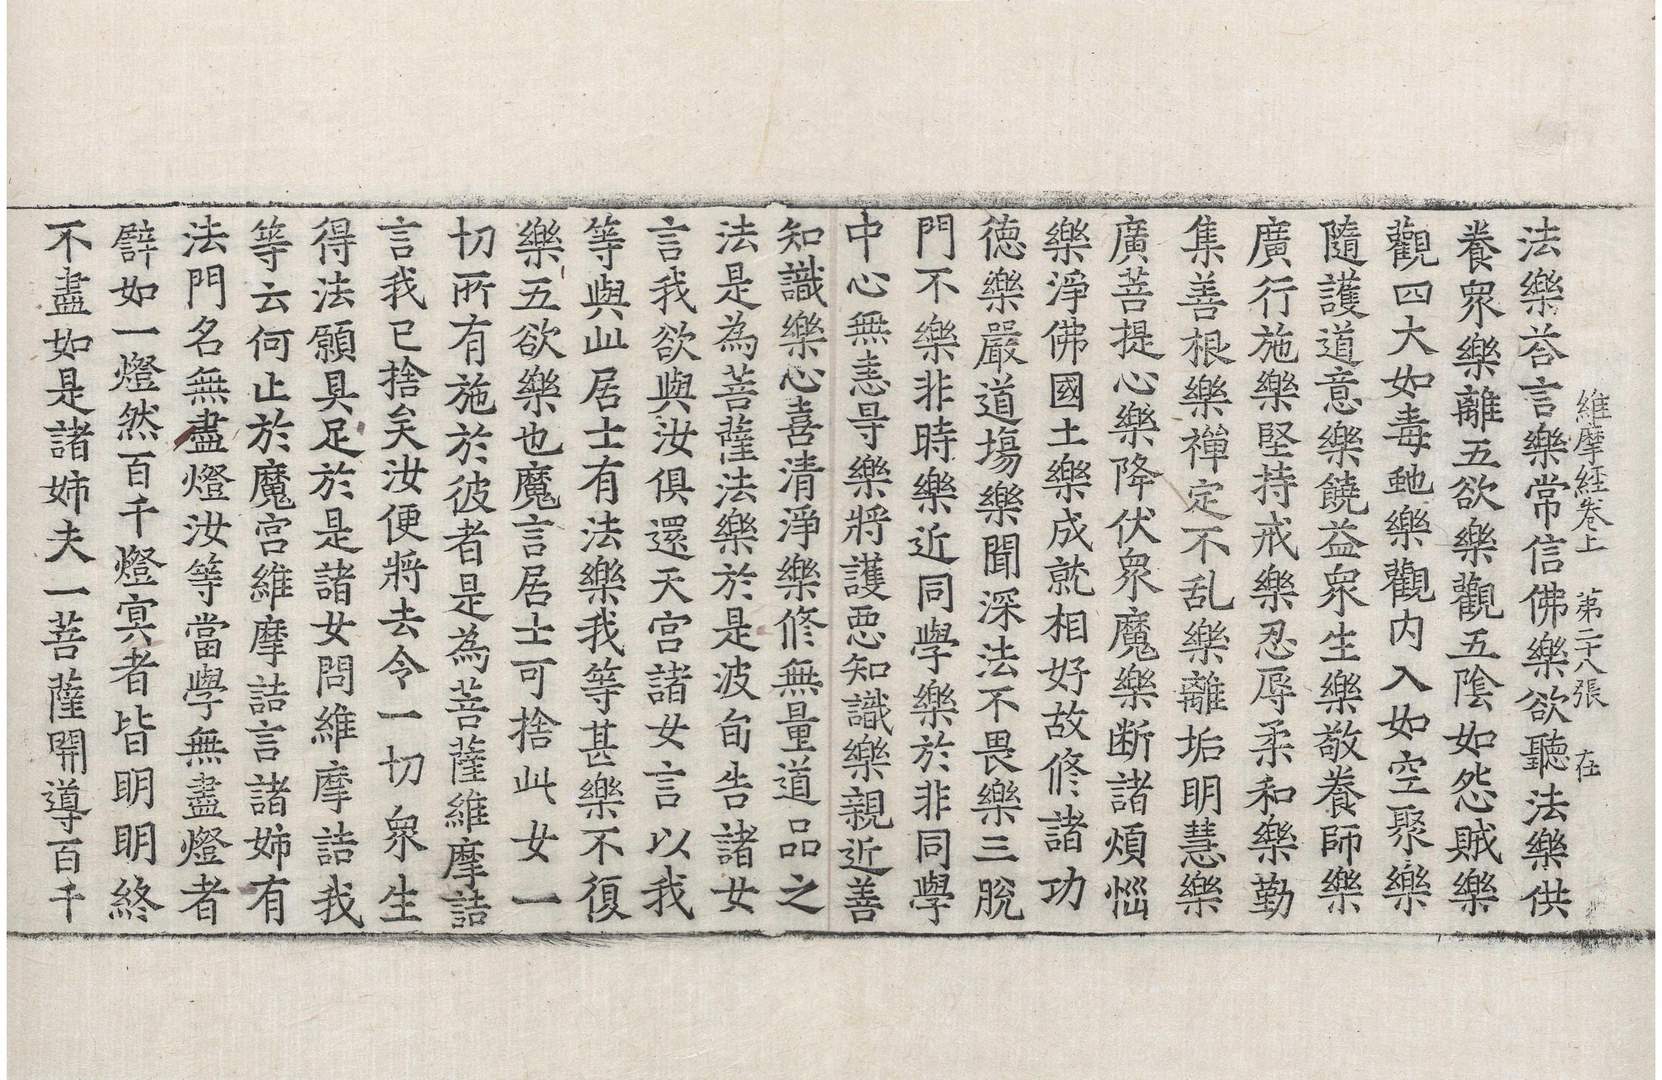 維摩經卷上 第二十八張 在
法樂荅言樂常信佛樂欲聽法樂供
養衆樂離五欲樂觀五陰如怨賊樂
觀四大如毒虵樂觀内入如空聚樂
隨護道意樂饒益衆生樂敬養師樂
廣行施樂堅持戒樂忍辱柔和樂勤
集善根樂禪定不乱樂離垢明慧樂
廣菩提心樂降伏衆魔樂断諸煩惱
樂淨佛國土樂成就相好故修諸功
德樂嚴道場樂聞深法不畏樂三脫
門不樂非時樂近同學樂於非同學
中心無恚㝵樂將護惡知識樂親近善
知識樂心喜清淨樂修無量道品之
法是為菩薩法樂於是波旬告諸女
言我欲與汝俱還天宮諸女言以我
等與此居士有法樂我等甚樂不復
樂五欲樂也魔言居士可捨此女一
切所有施於彼者是為菩薩維摩詰
言我已捨矣汝便將去令一切衆生
得法願具足於是諸女問維摩詰我
等云何止於魔宮維摩詰言諸姊有
法門名無盡燈汝等當學無盡燈者
譬如一燈然百千燈冥者皆明明終
不盡如是諸姊夫一菩薩開導百千